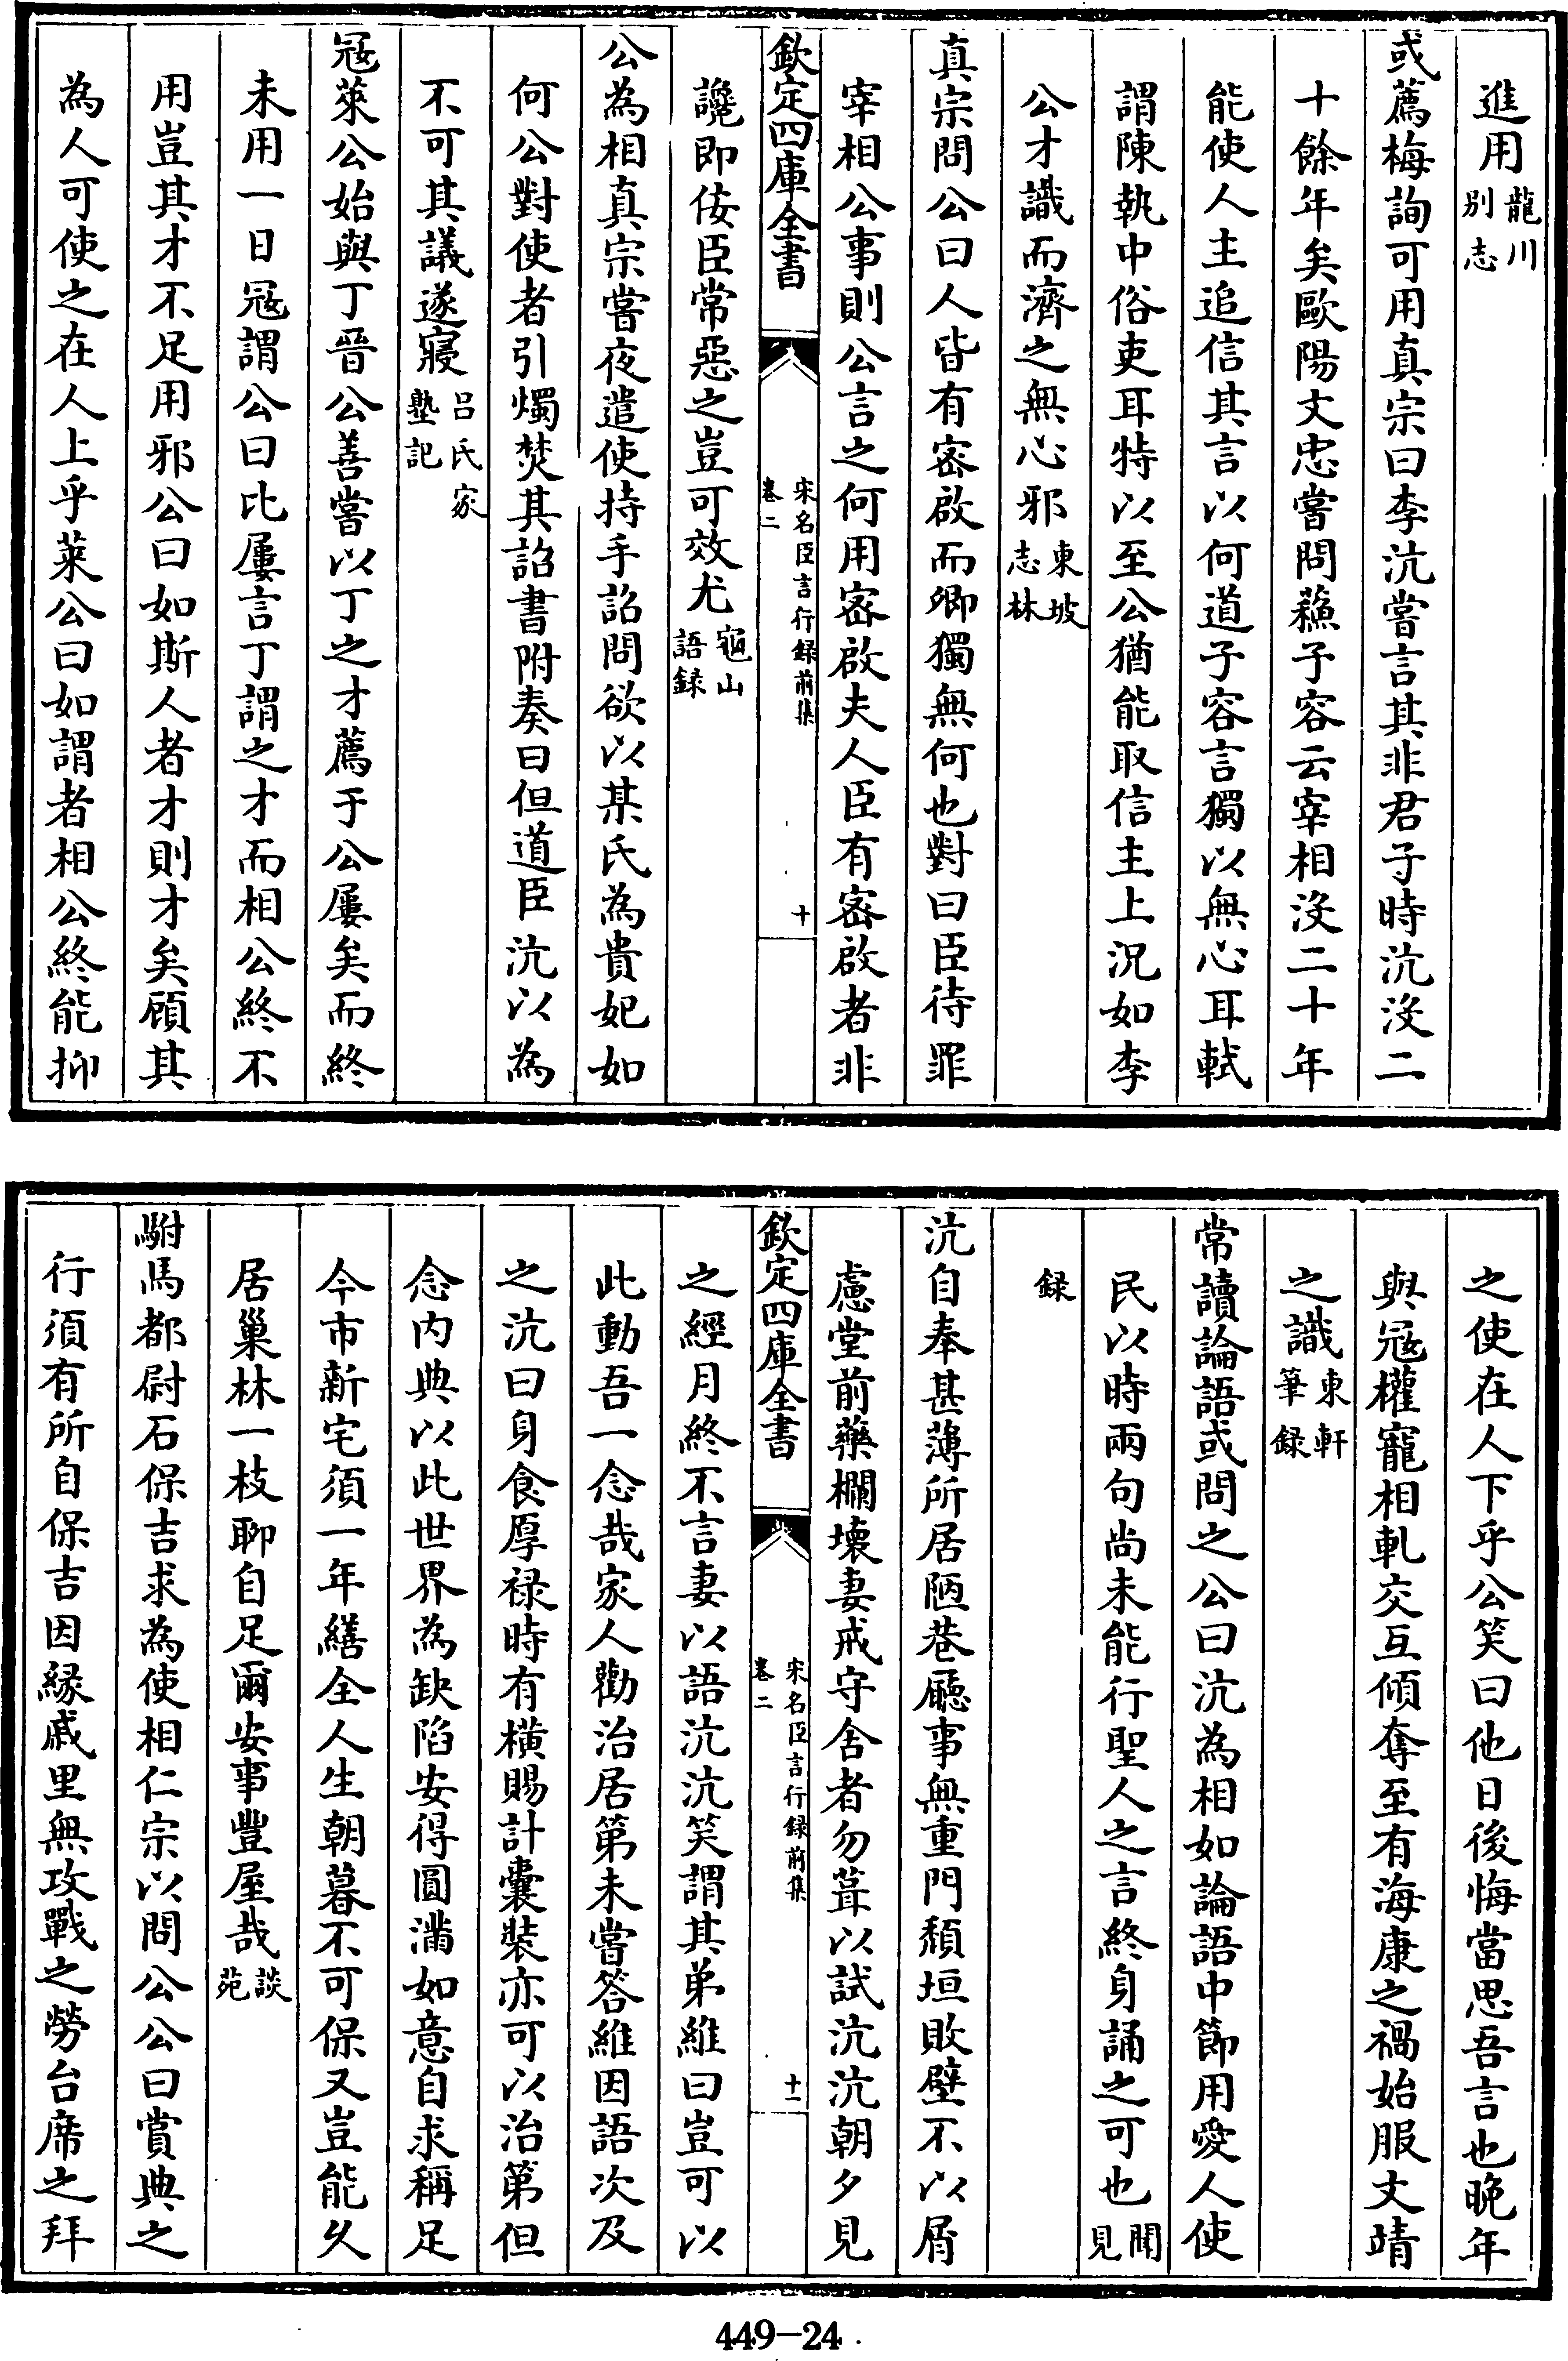 進用龍川別志
或薦梅詢可用真宗曰李沆嘗言其非君子時沆沒二
十餘年矣歐陽文忠嘗問蘓子容云宰相沒二十年
能使人主追信其言以何道子容言獨以無心耳軾
謂陳執中俗吏耳特以至公猶能取信主上況如李
公才識而濟之無心邪東坡志林
真宗問公曰人皆有密啟而卿獨無何也對曰臣待罪
宰相公事則公言之何用密啟夫人臣有密啟者非
欽定四庫全書
宋名臣言行録前集
卷二
十
讒即佞臣常惡之豈可效尤龜山語録
公為相真宗嘗夜遣使持手詔問欲以某氏為貴妃如
何公對使者引燭焚其詔書附奏曰但道臣沆以為
不可其議遂寢吕氏家塾記
冦萊公始與丁晉公善嘗以丁之才薦于公屢矣而終
未用一日冦謂公曰比屢言丁謂之才而相公終不
用豈其才不足用邪公曰如斯人者才則才矣顧其
為人可使之在人上乎萊公曰如謂者相公終能抑
之使在人下乎公笑曰他日後悔當思吾言也晚年
與冦權寵相軋交互傾奪至有海康之禍始服文靖
之識東軒筆録
常讀論語或問之公曰沆為相如論語中節用愛人使
民以時兩句尚未能行聖人之言終身誦之可也聞見
録
沆自奉甚薄所居陋巷廳事無重門頹垣敗壁不以屑
慮堂前藥欄壞妻戒守舍者勿葺以試沆沆朝夕見
欽定四庫全書
宋名臣言行録前集
卷二
十一
之經月終不言妻以語沆沆笑謂其弟維曰豈可以
此動吾一念哉家人勸治居第未嘗答維因語次及
之沆曰身食厚禄時有横賜計囊裝亦可以治第但
念内典以此世界為缺陷安得圓滿如意自求稱足
今市新宅須一年繕全人生朝暮不可保又豈能久
居巢林一枝聊自足爾安事豐屋哉談苑
駙馬都尉石保吉求為使相仁宗以問公公曰賞典之
行須有所自保吉因縁戚里無攻戰之勞台席之拜
449-24